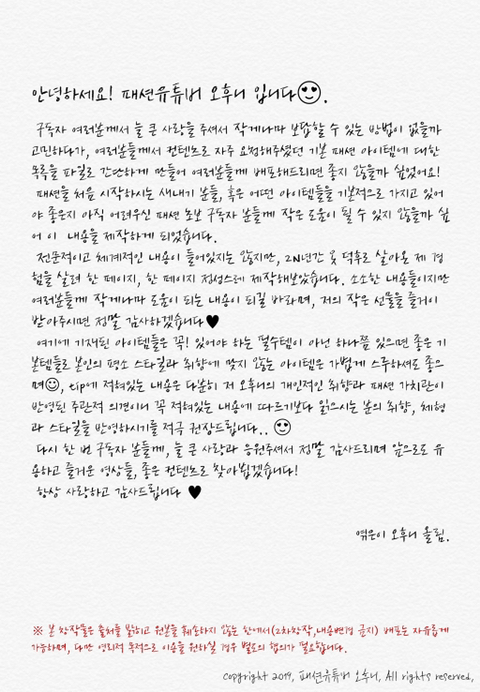 안녕하세요! 패션유튜버 오후니 입니다😍.
구독자 여러분께서 늘 큰 사랑을 주셔서 작게나마 보답할 수 있는 방법이 없을까
고민하다가, 여러분들께서 컨텐츠로 자주 요청해주셨던 기본 패션 아이템에 대한
목록을 파일로 간단하게 만들어 여러분들께 배포해드리면 좋지 않을까 싶었어요!
패션을 처음 시작하시는 새내기 분들, 혹은 어떤 아이템들을 기본적으로 가지고 있어
야 좋은지 아직 어려우신 패션 초보 구독자 분들께 작은 도움이 될 수 있지 않을까 싶
어 이 내용을 제작하게 되었습니다.
전문적이고 체계적인 내용이 들어있지는 않지만, 2N년간 옷 덕후로 살아온 제 경
험을 살려 한 페이지, 한 페이지 정성스레 제작해보았습니다. 소소한 내용들이지만
여러분들께 작게나마 도움이 되는 내용이 되길 바라며, 저의 작은 선물을 즐거이
받아주시면 정말 감사하겠습니다♥
여기에 기재된 아이템들은 꼭! 있어야 하는 필수템이 아닌 하나쯤 있으면 좋은 기
본템들로 본인의 평소 스타일과 취향에 맞지 않는 아이템은 가볍게 스루하셔도 좋으
며☺, tip에 적혀있는 내용은 다분히 저 오후니의 개인적인 취향과 패션 가치관이
반영된 주관적 의견이니 꼭 적혀있는 내용에 따르기보다 읽으시는 분의 취향, 체형
과 스타일을 반영하시기를 적극 권장드립니다.. ☺
다시 한 번 구독자 분들께, 늘 큰 사랑과 응원주셔서 정말 감사드리며 앞으로도 유
용하고 즐거운 영상들, 좋은 컨텐츠로 찾아뵙겠습니다!
항상 사랑하고 감사드립니다 ♥
엮은이 오후니 올림.
※ 본 창작물은 출처를 밝히고 원본을 훼손하지 않는 한에서(2차창작,내용변경 금지) 배포는 자유롭게
가능하며, 다만 영리적 목적으로 이용을 원하실 경우 별도의 협의가 필요합니다.
Copyright 2019. 패션유튜버 오후니. All rights reserved.